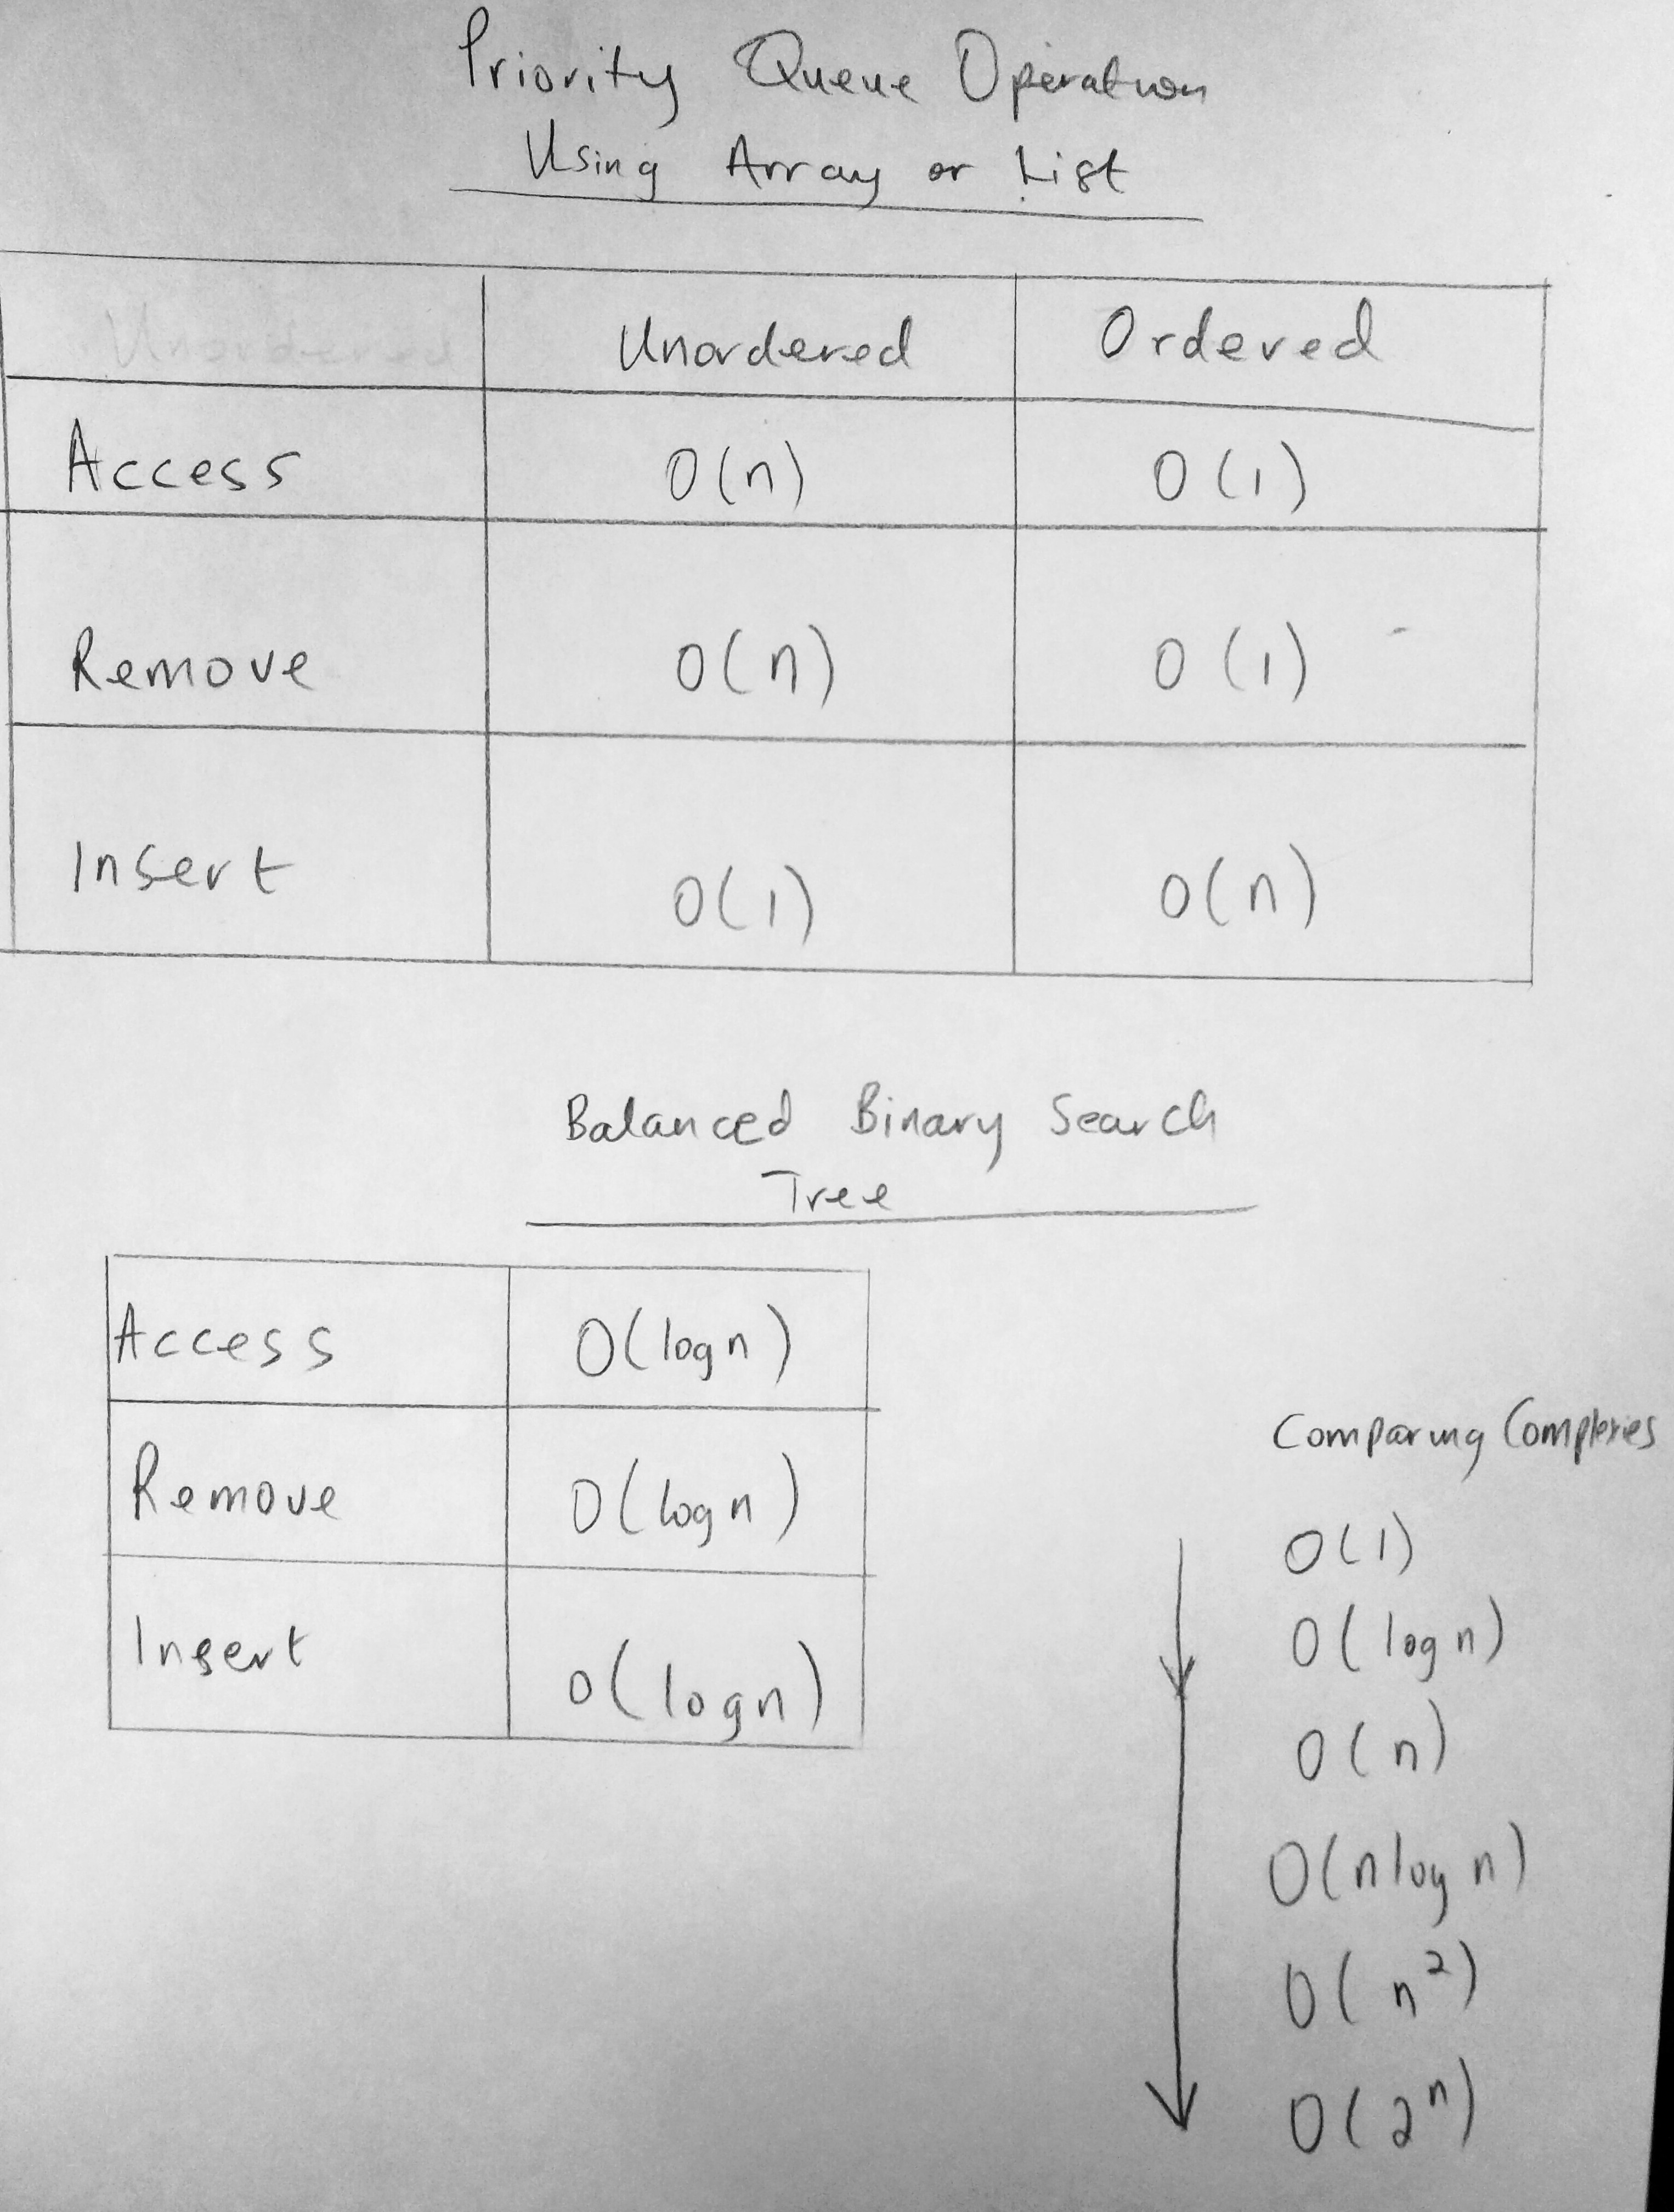 Priority Queue Operation
Using Array or List
Unordered
Unordered Ordered
Access O(n) O(1)
Remove O(n) O(1)
Insert O(1) O(n)
Balanced Binary Search
Tree
Access O(log n)
Remove O(log n)
Insert O(log n)
Comparing
O(1)
O(log n)
O(n)
O(n log n)
O(n²)
O(2ⁿ)